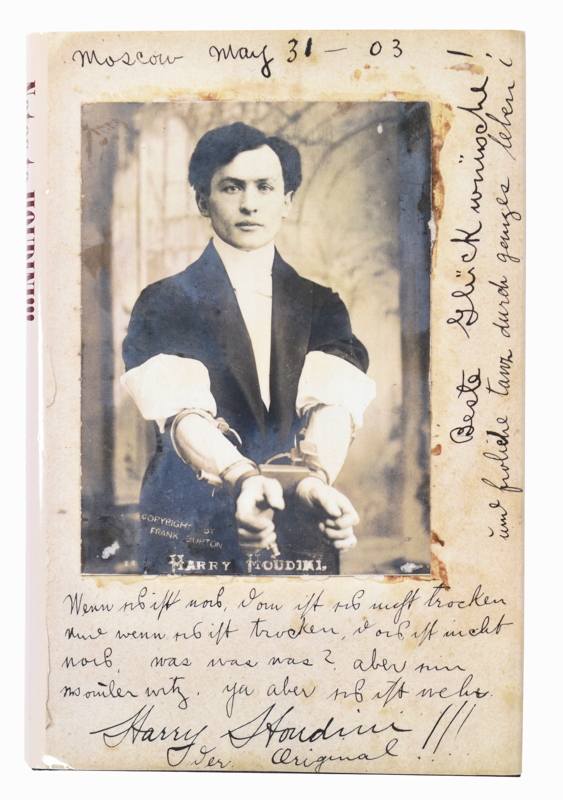 Moscow May 31 – 03
Beste Glück wünsche!
und froliche tanz durch ganzes leben!
HOUDINI!!!
COPYRIGHT BY
FRANK BURTON
HARRY HOUDINI.
Wenn es ist nass, dann ist es nicht trocken
und wenn es ist trocken, das ist nicht
nass. was was was? aber
witz. ya aber es ist wehr.
Harry Houdini !!!
Der. Original